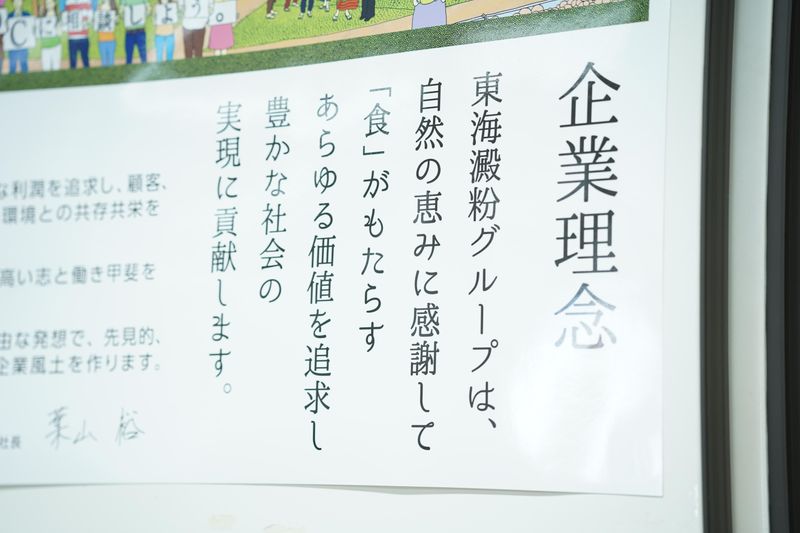 に相談しよう。
企業理念
東海澱粉グループは、
自然の恵みに感謝して
「食」がもたらす
あらゆる価値を追求し
豊かな社会の
実現に貢献します。
な利潤を追求し、顧客、
環境との共存共栄を
高い志と働き甲斐を
由な発想で、先見的、
企業風土を作ります。
社長 葉山 裕